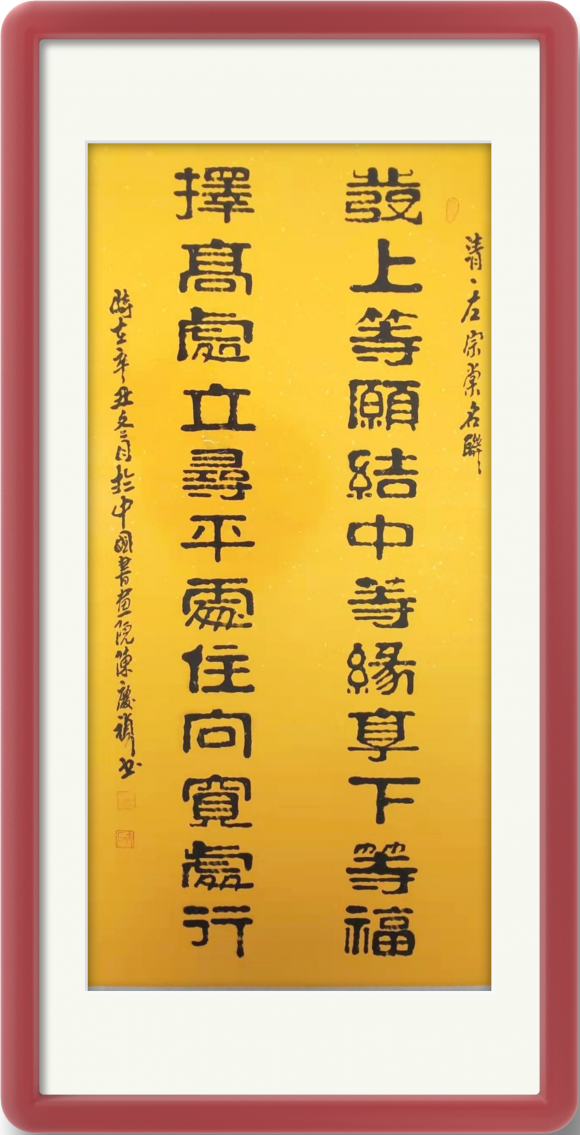 清、左宗棠名聯
發上等願結中等緣享下等福
擇髙處立尋平處住向寬處行
時在辛丑冬月於中國書畫院陳慶書